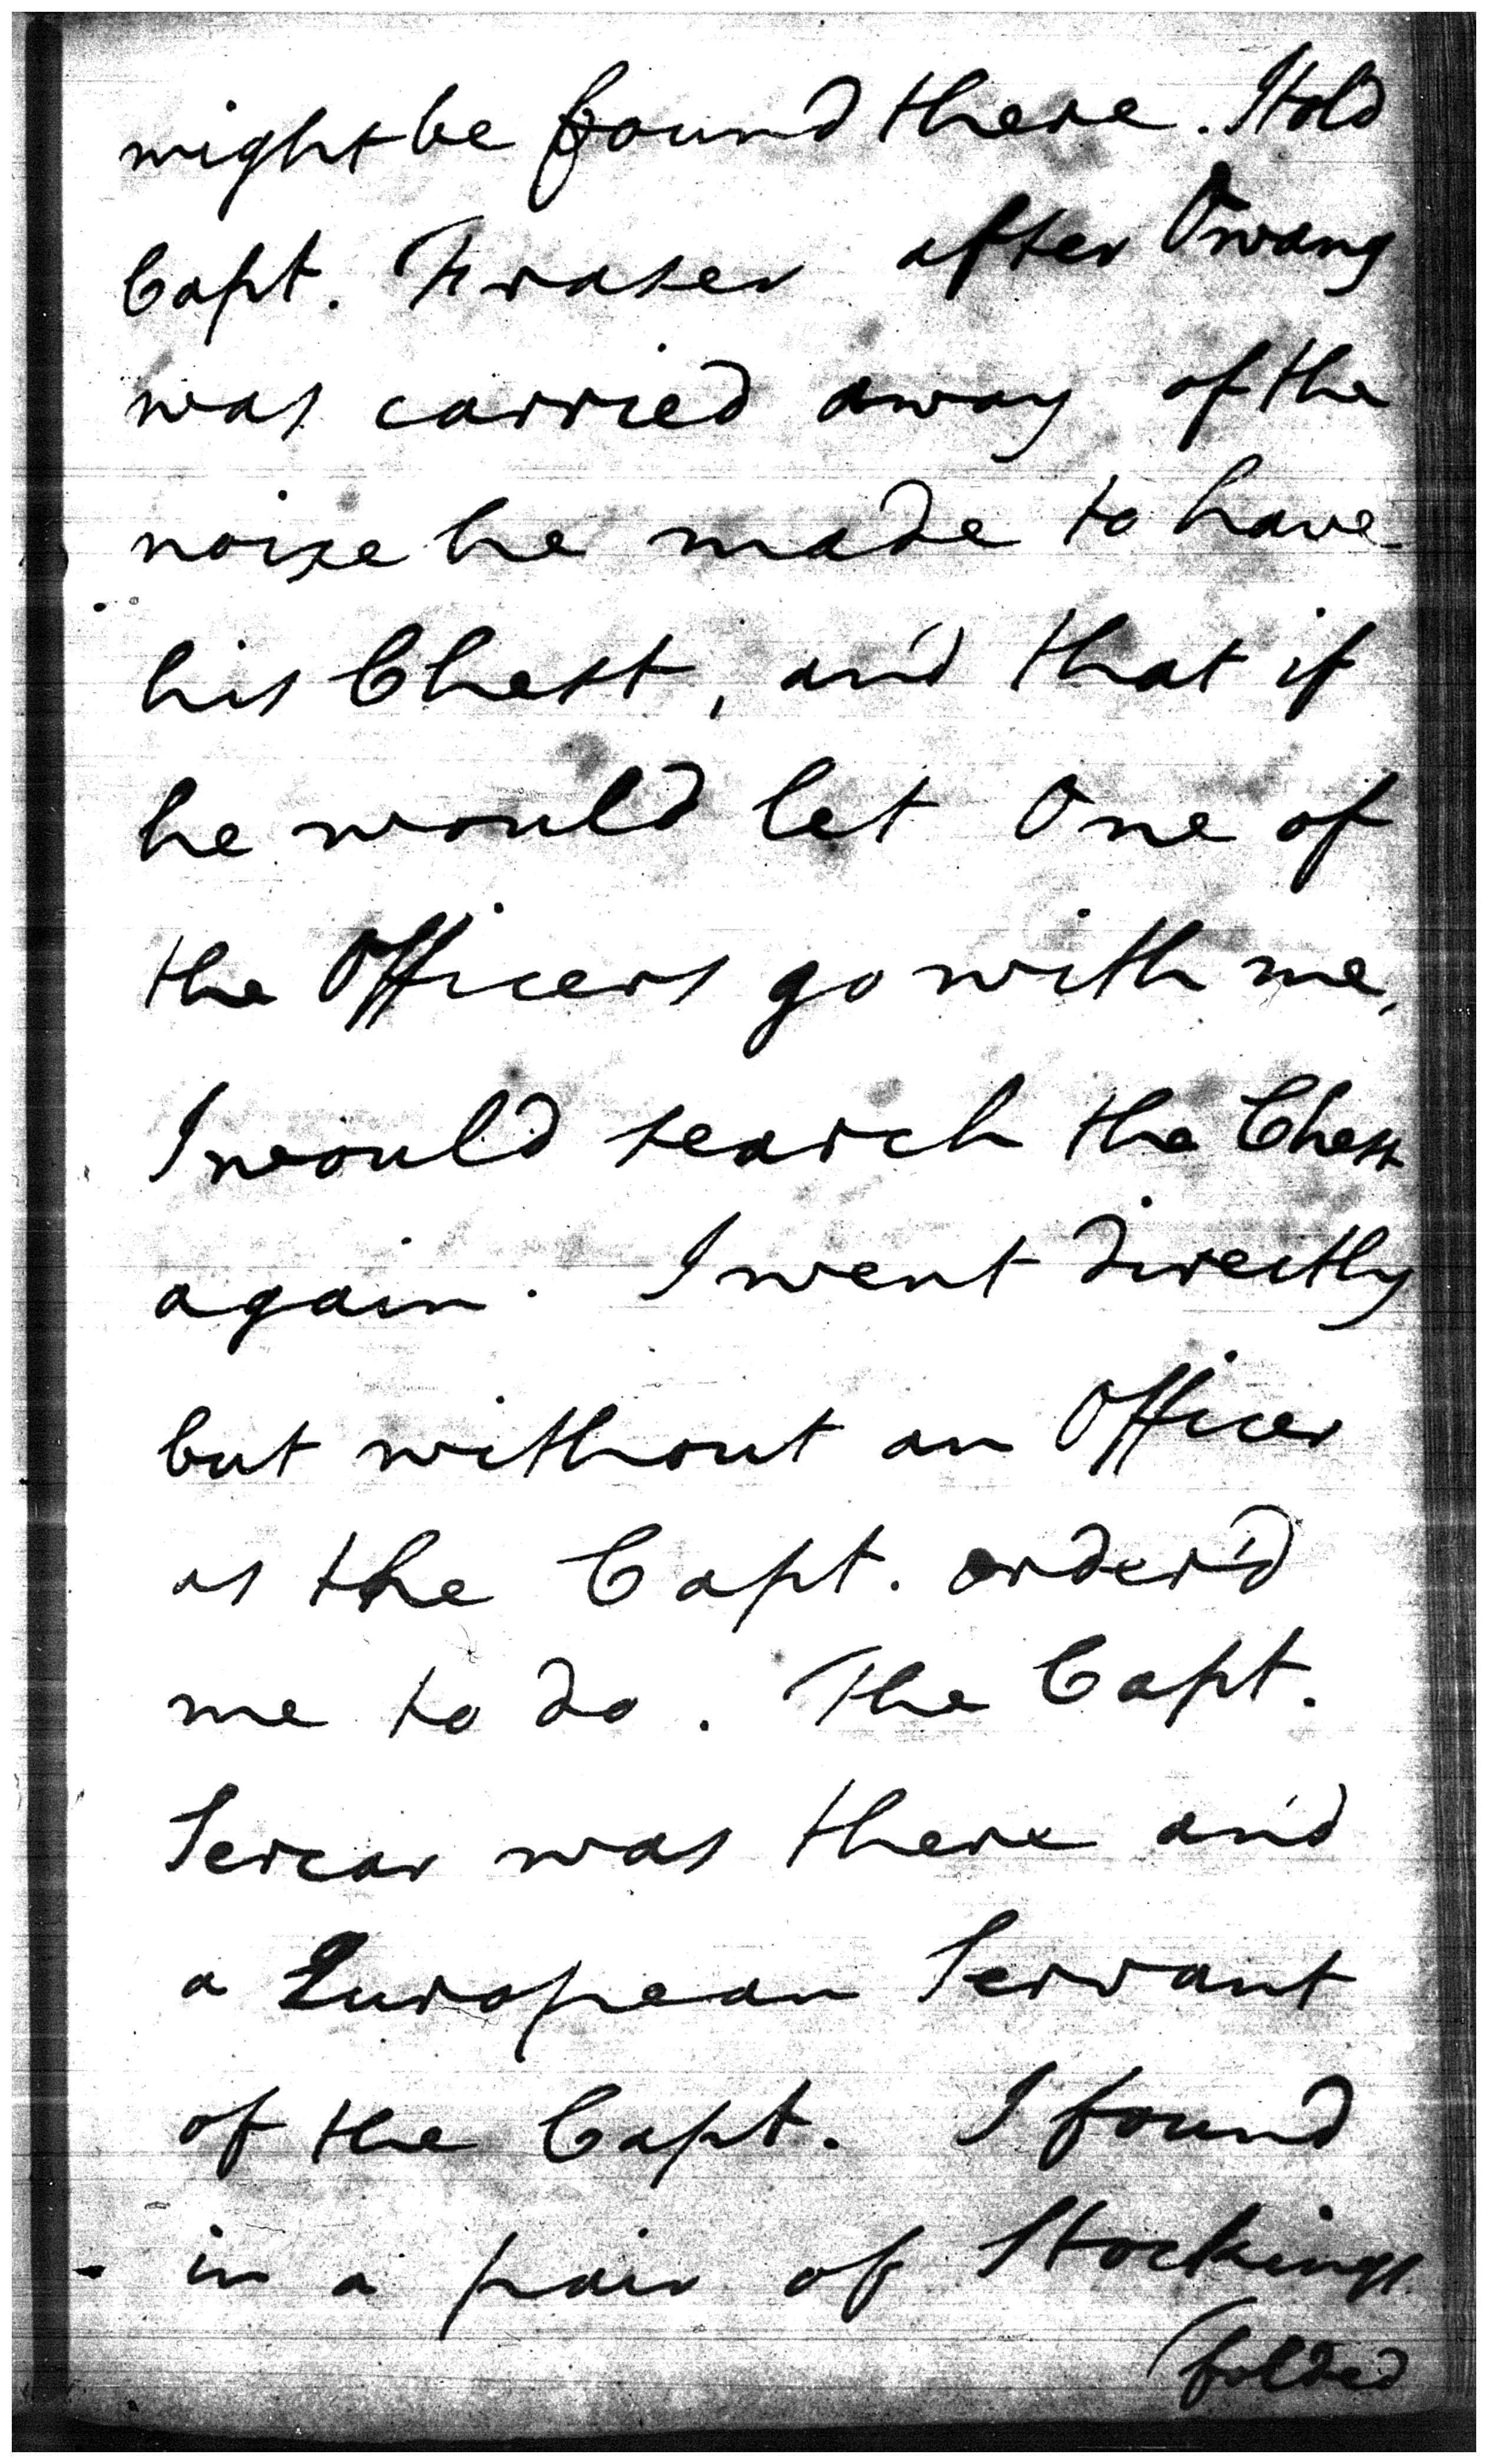 might be found there. I told
Capt. Fraser after Owang
was carried away of the
noise he made to have
his Chest, and that if
he would let One of
the Officers go with me,
I would search the Chest
again. I went directly
but without an Officer
as the Capt. order'd
me to do. The Capt.
Sercar was there and
a European Servant
of the Capt. I found
in a pair of Stockings
(folded